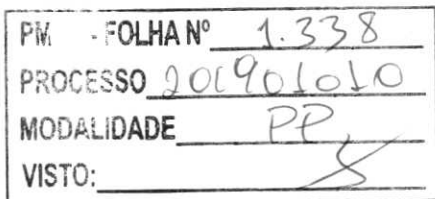 PM - FOLHA Nº 1.338
PROCESSO 201901010
MODALIDADE PP
VISTO: